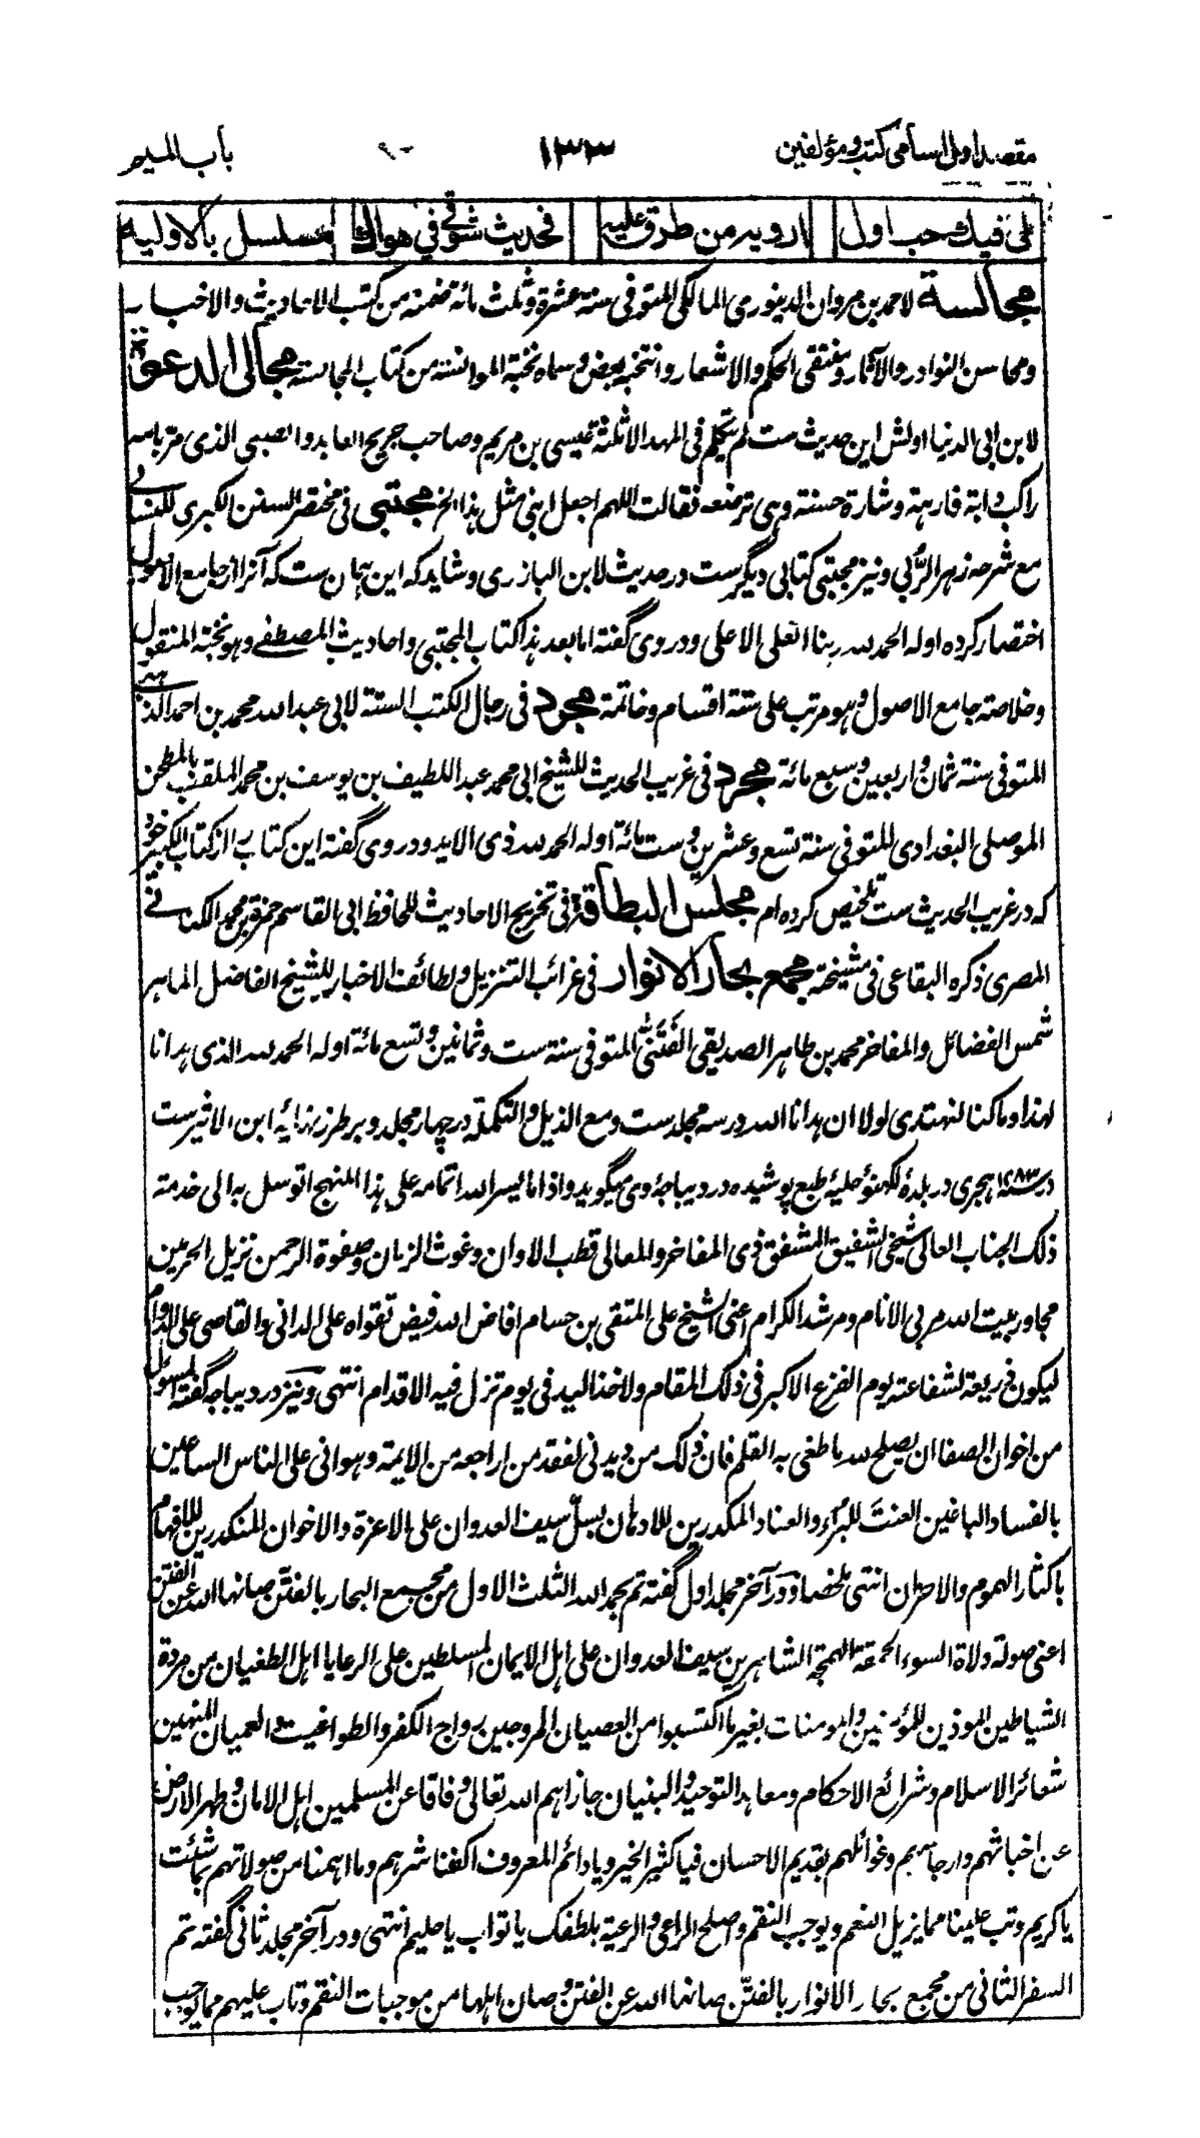 مقصد اول اسامی کتب و مؤلفین ۱۳۳ باب المیم
لی فیك حب اول ارویه من طرق علیه فحدیث شوقی فی هواك مسلسل بالاولیه
مجالسة لاحمد بن مروان الدینوری المالکی المتوفی سنة عشرة و ثلث مائة ضمنه من کتب الاحادیث والاخبار
ومحاسن النوادر والآثار ومنتقی الحکم والاشعار وانتخبه بعض وسماه نخبة الموانسة من کتاب المجالسة مجابی الدعوة
لابن ابی الدنیا اولش این حدیث ست لم یتکلم فی المهد الا ثلثة عیسی بن مریم وصاحب جریج العابد والصبی الذی مر بامه
راکب دابة فارهة وشارة حسنة وهی ترضعه فقالت اللهم اجعل ابنی مثل هذا الخ مجتبی فی مختصر السنن الکبری للنسائی
مع شرحه زهر الربی ونیز مجتبی کتابی دیگرست در حدیث لابن البازری وشاید که این همان ست که آنرا از جامع الاصول
اختصار کرده اوله الحمد لله ربنا العلی الاعلی ودر وی گفته اما بعد هذا کتاب المجتبی واحادیث المصطفی وهو نخبة المنقول
وخلاصة جامع الاصول وهو مرتب علی ستة اقسام وخاتمة مجرد فی رجال الکتب الستة لابی عبد الله محمد بن احمد الذهبی
المتوفی سنة ثمان واربعین وسبع مائة مجرد فی غریب الحدیث للشیخ ابی محمد عبد اللطیف بن یوسف بن محمد الملقب بالمطحن
الموصلی البغدادی المتوفی سنة تسع وعشرین وست مائة اوله الحمد لله ذی الاید ودر وی گفته این کتاب را از کتاب الکبیر خود
که در غریب الحدیث ست تلخیص کرده ام مجلس البطاقة فی تخریج الاحادیث للحافظ ابی القاسم حمزة بن محمد الکنانی
المصری ذکره البقاعی فی مشیخته مجمع بحار الانوار فی غرائب التنزیل ولطائف الاخبار للشیخ الفاضل الماهر
شمس الفضائل والمفاخر محمد بن طاهر الصدیقی الفَتَّنی المتوفی سنة ست وثمانین وتسع مائة اوله الحمد لله الذی هدانا
لهذا وما کنا لنهتدی لولا ان هدانا الله در سه مجلد ست ومع الذیل والتکملة در چهار مجلد وبر طرز نهایه ابن الاثیر ست
در سنه ۱۲۸۳ هجری در بلدۀ لکهنؤ حلیۀ طبع پوشیده در دیباجۀ وی میگوید واذا ما یسر الله اتمامه علی هذا المنهج اتوسل به الی خدمة
ذلک الجناب العالی شیخی الشفیق المشفق ذی المفاخر والمعالی قطب الاوان وغوث الزمان وصفوة الرحمن نزیل الحرمین
مجاور بیت الله مربی الانام ومرشد الکرام اعنی الشیخ علی المتقی بن حسام افاض الله فیض تقواه علی الدانی والقاصی علی الدوام
لیکون ذریعة لشفاعته یوم الفزع الاکبر فی ذلک المقام ولاخذ الید فی یوم تزل فیه الاقدام انتهی ونیز در دیباجه گفته المسئول
من اخوان الصفا ان یصلح لله ما طغی به القلم فان ذلک من دیدنی لفقد من اراجعه من الایمة وهوانی علی الناس الساعین
بالفساد الباغین العنت للبرآء والعناد المکدرین للاذهان بسلّ سیف العدوان علی الاعزة والاخوان المنکدرین للافهام
باکثار الهموم والاحزان انتهی ملخصا ودر آخر مجلد اول گفته تم بحمد الله الثلث الاول من مجمع البحار بالفتّن صانها الله عن الفتن
اعنی صولة ولاة السوء الحمقة الهمجة الشاهرین سیف العدوان علی اهل الایمان المسلطین علی الرعایا اهل الطغیان من مردة
الشیاطین الموذین للمؤمنین والمومنات بغیر ما اکتسبوا من العصیان المروجین رواج الکفر والطواغیت والعمیان المنهین
شعائر الاسلام وشرائع الاحکام ومعاهد التوحید والبنیان جازاهم الله تعالی وفاقا عن المسلمین اهل الامان وطهر الارض
عن اخباثهم وارجاسهم وغوائلهم بقدیم الاحسان فیا کثیر الخیر ویا دائم المعروف اکفنا شرهم وما اهمنا من صولاتهم بما شئت
یا کریم وتب علینا مما یزیل النعم ویوجب النقم واصلح الراعی والرعیة بلطفک یا تواب یا حلیم انتهی ودر آخر مجلد ثانی گفته تم
السفر الثانی من مجمع بحار الانوار بالفتّن صانها الله عن الفتن وصان اهلها من موجبات النقم وتاب علیهم مما یوجب